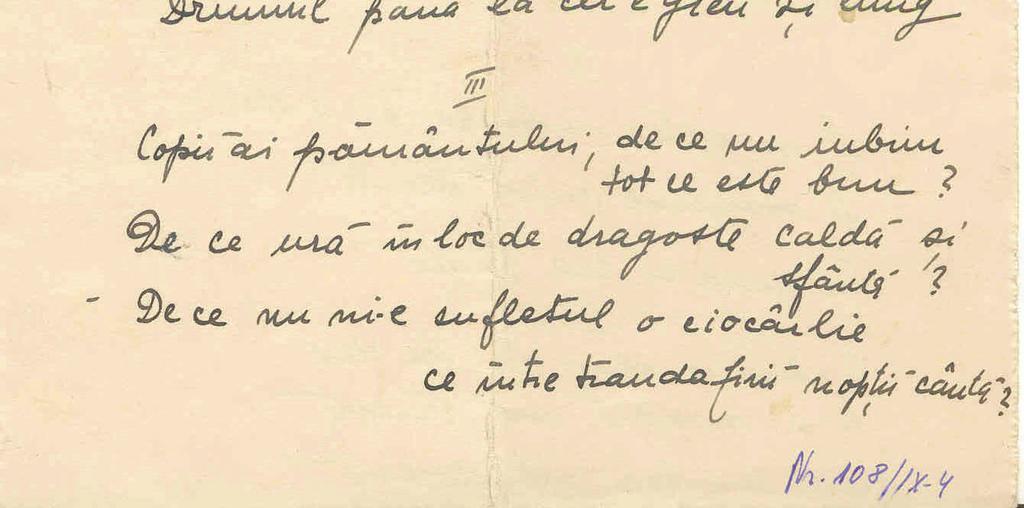 Drumul până la cer e greu și lung
III
Copii ai pământului, de ce nu iubim
tot ce este bun ?
De ce ură în loc de dragoste caldă și
sfântă ?
- De ce nu ni-e sufletul o ciocârlie
ce între trandafirii nopții cântă ?
Nr. 108/IX-4